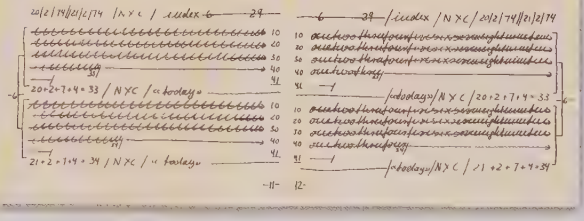 20/2/74//21/2/74 /NYC / index 6 29
10
20
30
40
33/
41
-6-
20+2+7+4 = 33 /NYC / «today»
10
20
30
40
34/
41
21+2+7+4 = 34 /NYC / «today»
-11-
6 29 /index / NYC / 20/2/74//21/2/74
10 onetwothreefourfivesixseveneightnineten
20 onetwothreefourfivesixseveneightnineten
30 onetwothreefourfivesixseveneightnineten
40 onetwothree
33/
41
-6-
/«today»/NYC / 20+2+7+4 = 33
10 onetwothreefourfivesixseveneightnineten
20 onetwothreefourfivesixseveneightnineten
30 onetwothreefourfivesixseveneightnineten
40 onetwothreefour
34/
41
/«today»/NYC / 21+2+7+4=34
12-